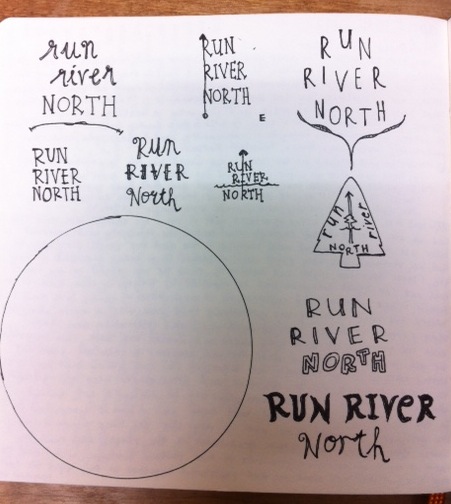 run
river
NORTH
RUN
RIVER
NORTH
E
RUN
RIVER
NORTH
RUN
RIVER
NORTH
Run
RIVER
North
RUN
RIVER
NORTH
run
river
NORTH
RUN
RIVER
NORTH
RUN RIVER
North